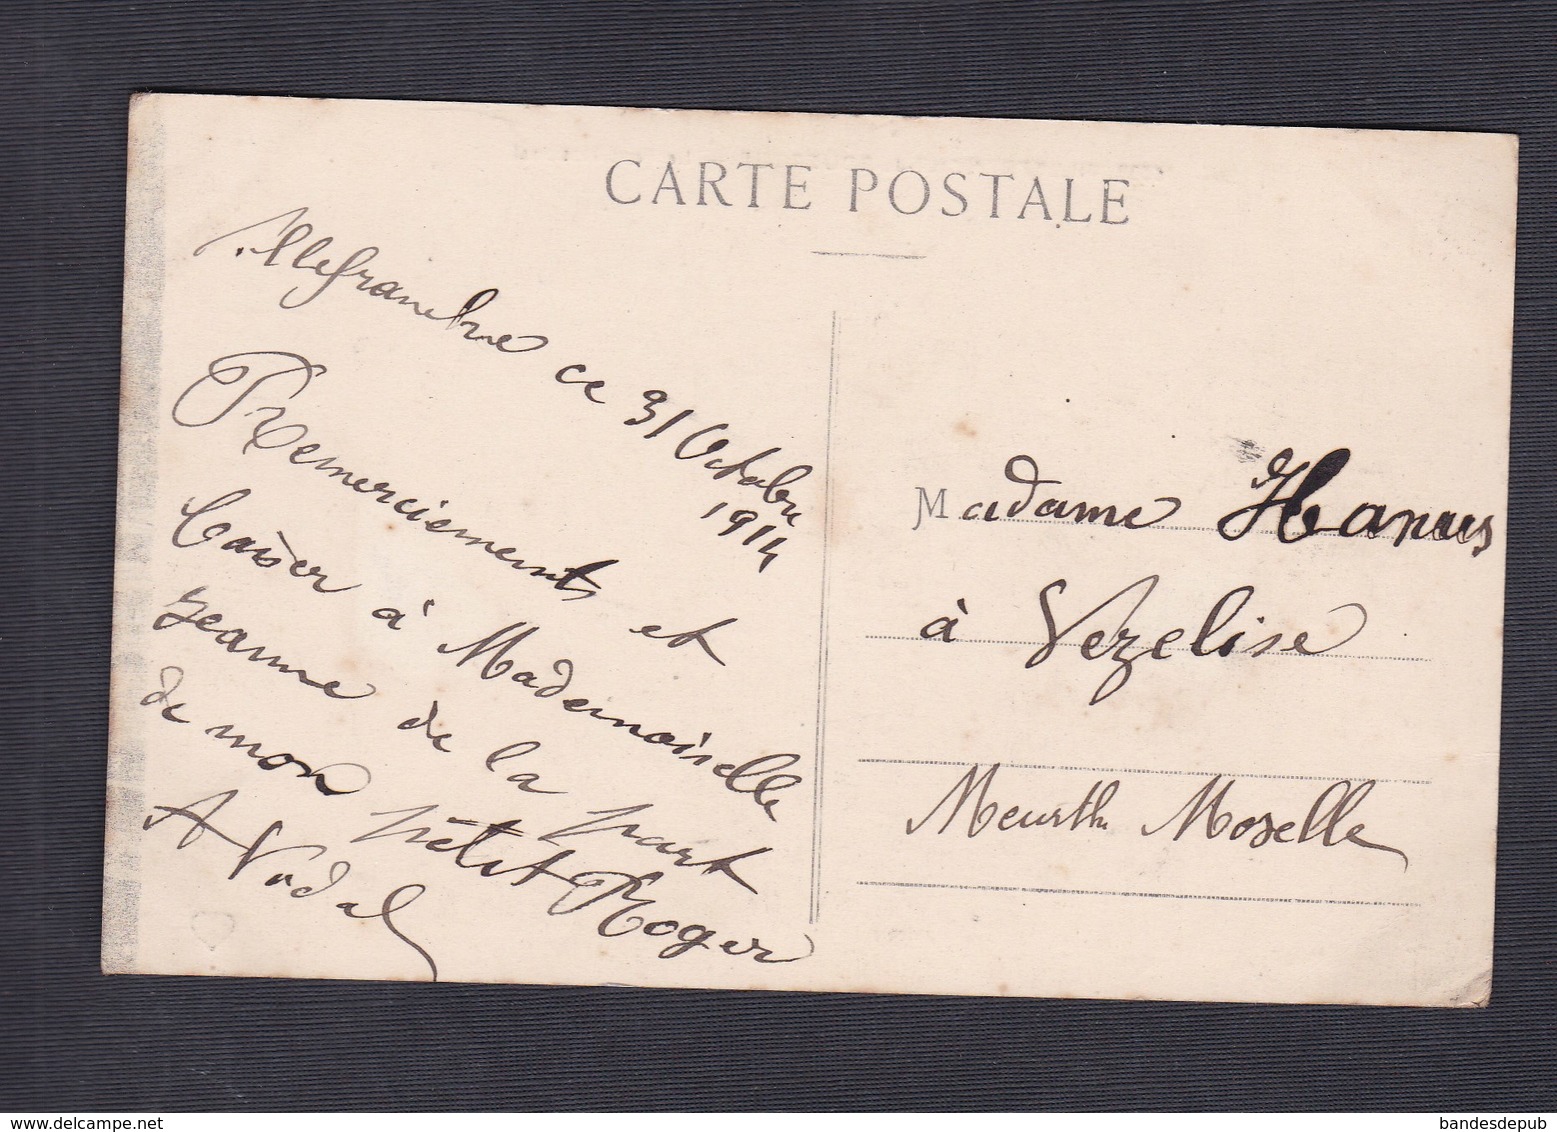 CARTE POSTALE
Villefranche ce 31 Octobre
1914
Remerciements et
baiser à Mademoiselle
Jeanne de la part
de mon petit Roger
A Vidal
Madame
à Vezelise
Meurthe Moselle
delcampe.net
bandesdepub